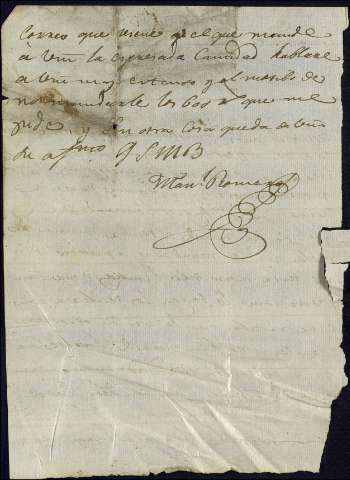 Correo que viene y el que mande
à Vm la espresada Cantidad hablare
a Vm mas estenso y el motibo de
no mandarle los 600 r^s que me
pide, y sin otra cosa queda de Vm
su af^mo Q S M B
Man^l Romero